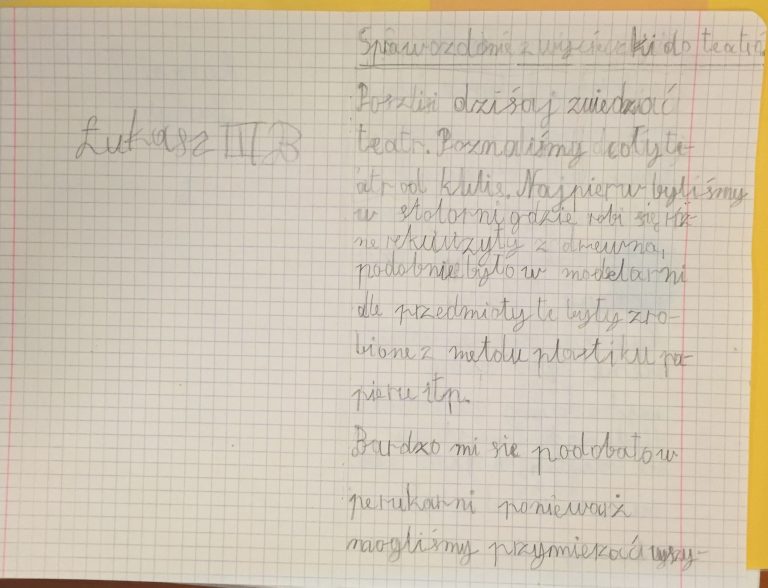 Sprawozdanie z wycieczki do teatru
Poszliśmy dzisiaj zwiedzać
Łukasz III B
teatr. Poznaliśmy cały te-
atr od kulis. Najpierw byliśmy
w stolarni gdzie robi się róż-
ne rekwizyty z drewna,
podobnie było w modelarni
ale przedmioty te były zro-
bione z metalu plastiku pa-
pieru itp.
Bardzo mi się podobało w
perukarni ponieważ
mogliśmy przymierzać